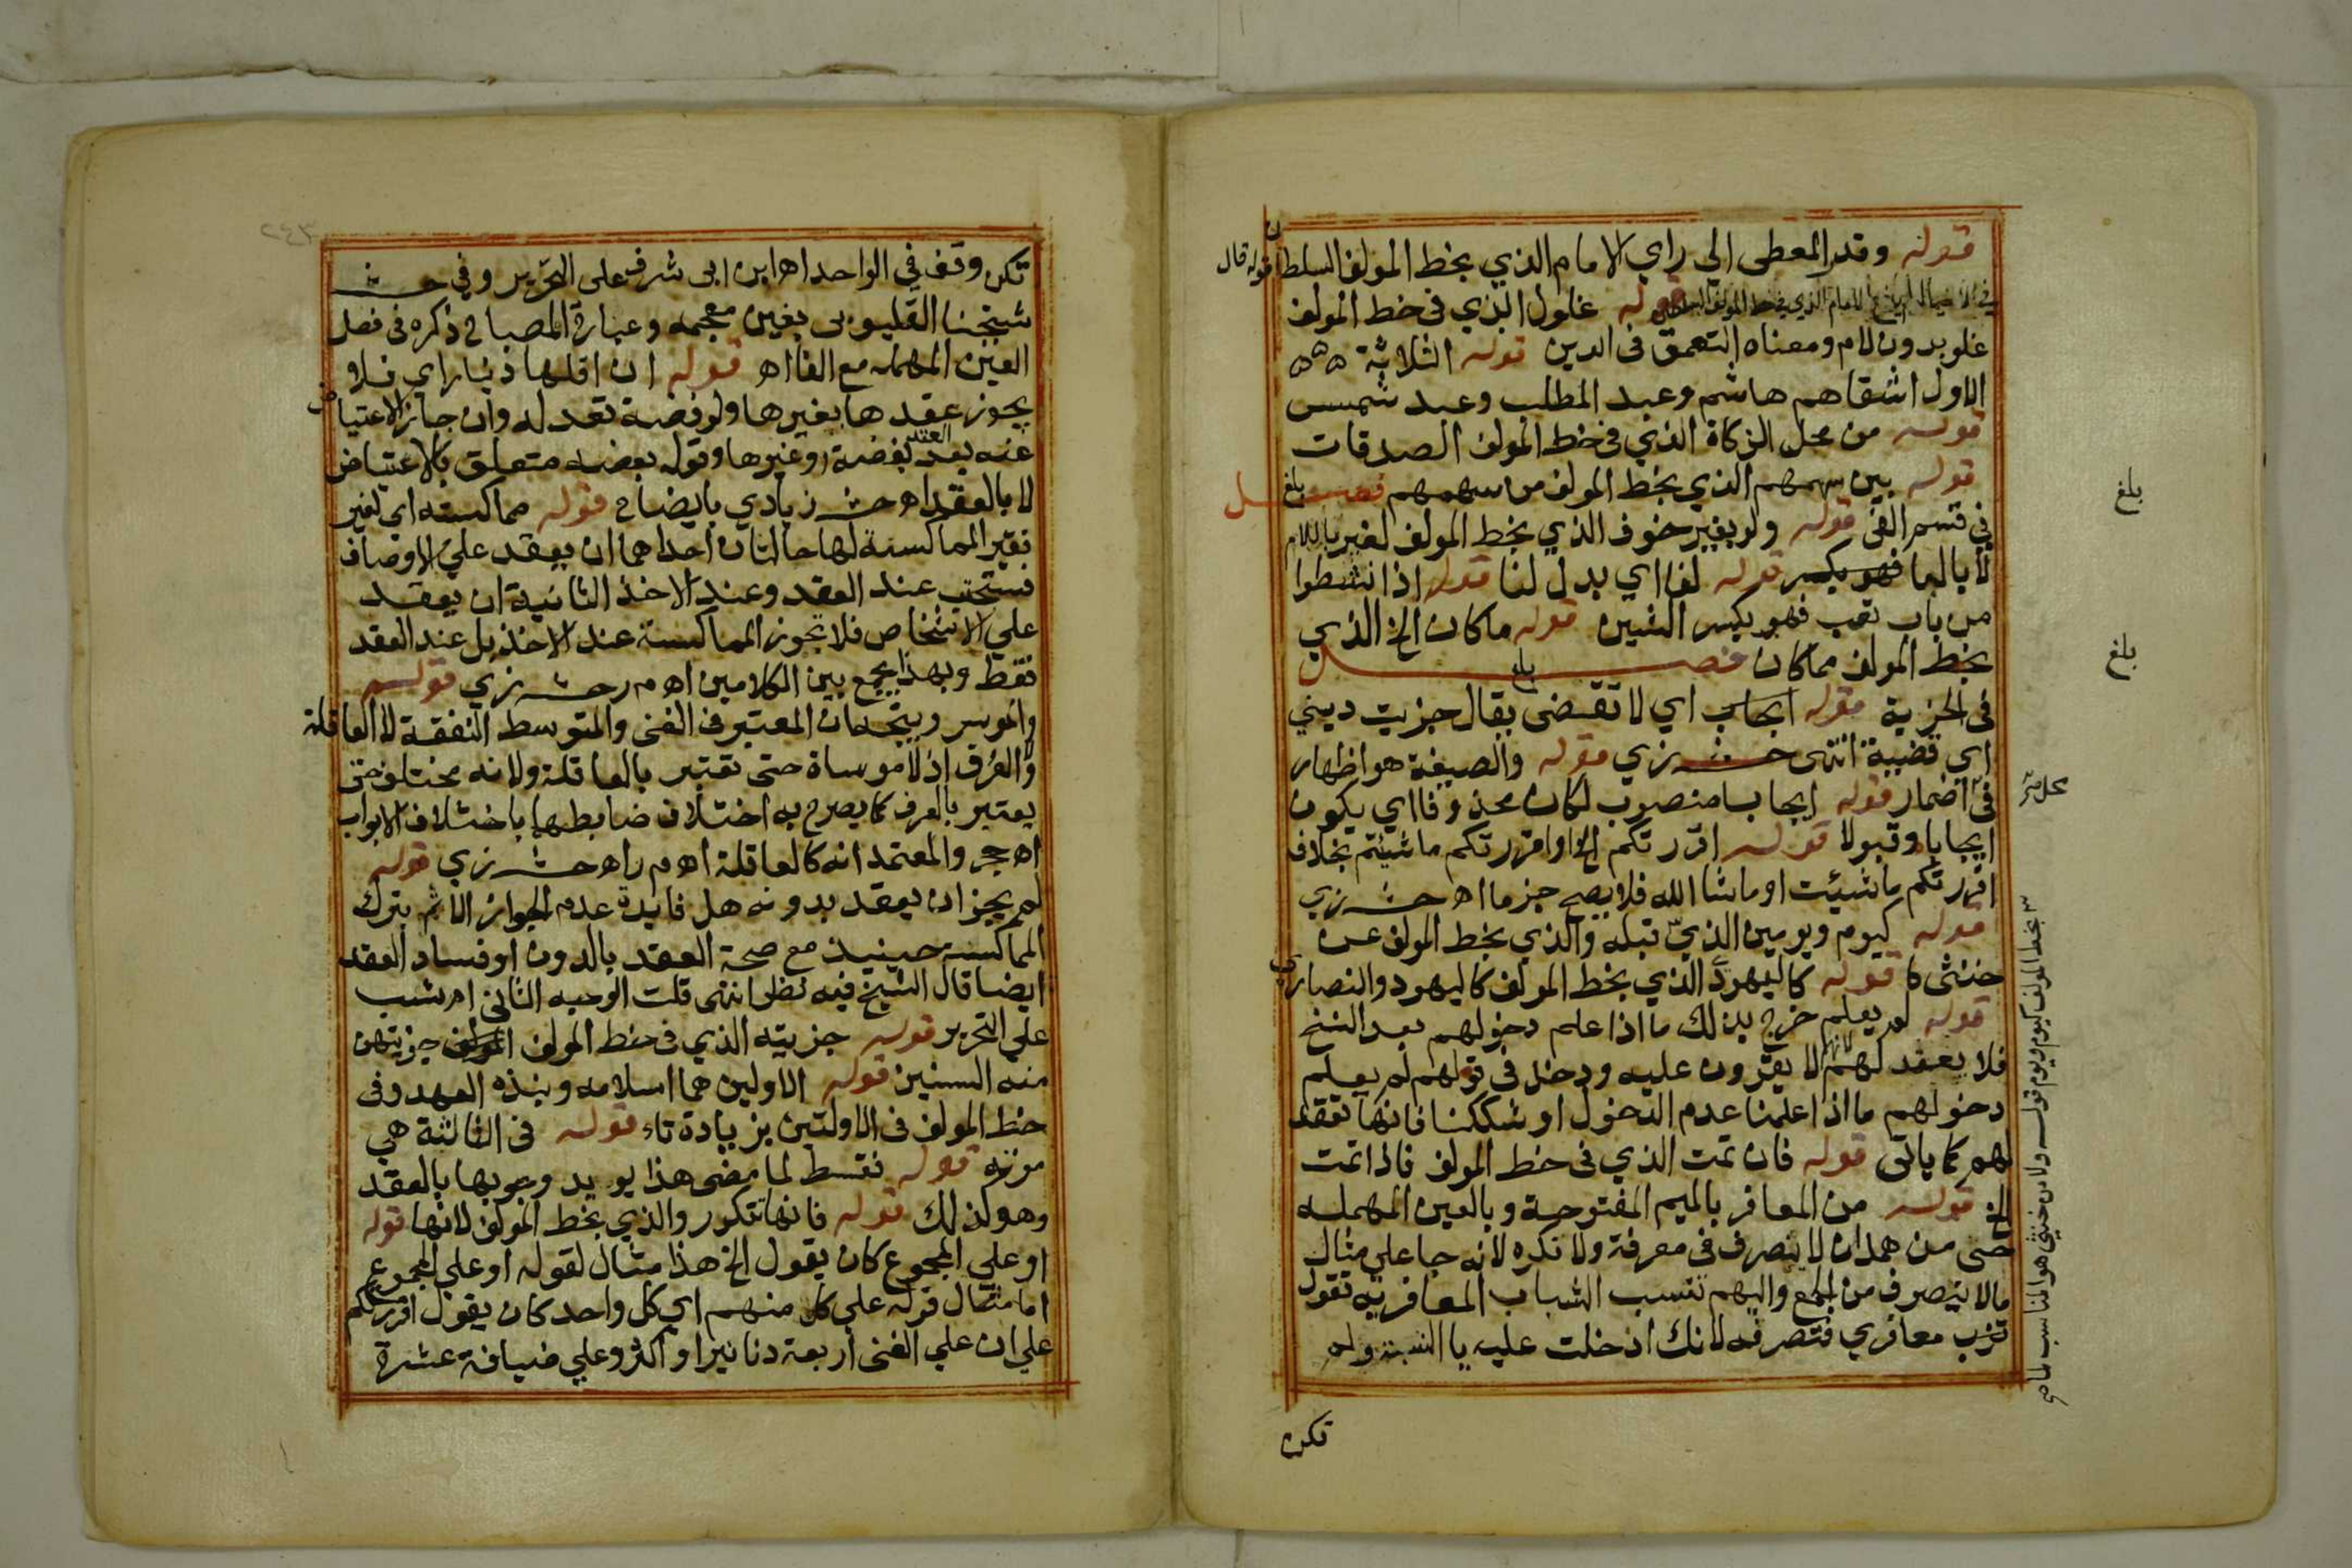 قوله وقدر المعطى الي راي الامام الذي بخط المولف السلطان
قوله قال
قوله غلول الذي فى خط المولف
غلو بدون لام ومعناه التعمق فى الدين قوله الثلاثة ه ه ه
الاول اشقاهم هاشم وعبد المطلب وعبد شمس
قوله من محل الزكاة الذي فى خط المولف الصدقات
قوله بين سهمهم الذي بخط المولف من سهمهم فصل
بلغ
فى قسم الفى قوله ولو بغير خوف الذي بخط المولف لغير باللام
لا بالبا فهو بكسر قوله لفا اي بدل لنا قوله اذا نشطوا
من باب تعب فهو بكسر الشين قوله ما كان الخ الذي
بخط المولف مما كان فصل
بلغ
فى الجزية قوله ايجاب اي لا تقضى يقال جزيت ديني
اي قضيته انتهى حش زي قوله والصيغة هو اظهار
فى اضمار قوله ايجابا منصوب لكان محذوفا اي يكون
ايجابا وقبولا قوله اقررتكم الخ او اقررتكم ما شيئتم بخلاف
اقررتكم ما شيئت او ما شا الله فلا يصح جزما اه حش زي
قوله كيوم ويومين الذي قبله والذي بخط المولف عن
خنثى كا قوله كاليهود الذي بخط المولف كاليهود والنصارى
قوله لم يعلم خرج بذلك ما اذا علم دخولهم بعد النسخ
فلا يعقد لهم لانهم لا يقرون عليه ودخل فى قولهم لم يعلم
دخولهم ما اذا علمنا عدم الدخول او شككنا فانها تعقد
لهم كما ياتى قوله فان تمت الذي فى خط المولف فاذا تمت
الخ قوله من المعافر بالميم المفتوحة وبالعين المهمله
حى من همدان لا ينصرف فى معرفة ولا نكره لانه جا على مثال
مالا ينصرف من الجمع واليهم تنسب الثياب المعافرية تقول
ثوب معافري فتصرفه لانك ادخلت عليه يا النسبة ولم
تكن
بلغ
بلغ
بخط المولف كيوم ويوم قوله ولا من خنثى هو المناسب لما مر
٢٤٣
تكن وقف في الواحد اه ابن ابى شرف على التحرير وفي حش
شيخنا القليوبى بغين معجمه وعبارة المصباح ذكره فى فصل
العين المهمله مع الفا اه قوله ان اقلها دينار اي فلا
يجوز عقدها بغيرها ولو فضة تعدله وان جاز الاعتياض
عنه بعد العقد بفضة وغيرها وقوله بعضه متعلق بالاعتياض
لا بالعقد اه حش زيادي بايضاح قوله مماكسته اي لغير
فقير المماكسة لها حالتان احداهما ان يعقد على الاوصاف
فتستحب عند العقد وعند الاخذ الثانية ان يعقد
على الاشخاص فلا تجوز المماكسة عند الاخذ بل عند العقد
فقط وبهذا يجمع بين الكلامين اه م ر حش زي قوله
والموسر ويتجه ان المعتبر فى الغنى والمتوسط النفقة لا العاقلة
والعرف اذ لا مواساة حتى تعتبر بالعاقلة ولا نه مختلف حتى
يعتبر بالعرف كما يصرح به اختلاف ضابطها باختلاف الابواب
اه حجر والمعتمد انه كالعاقلة اه م ر اه حش زي قوله
لم يجز ان يعقد بدونه هل فايدة عدم الجواز الاثم بترك
المماكسه حينيذ مع صحة العقد بالدون او فساد العقد
ايضا قال الشيخ فيه نظر انتهى قلت الوجيه الثاني اه شب
على التحرير قوله جزيته الذي فى خط المولف جزيتهن
منه السنين قوله الاولين هما اسلامه ونبذه العهد وفى
خط المولف فى الاولتين بزيادة تاء قوله فى الثالثة هي
موته قوله فقسط لما مضى هذا يويد وجوبها بالعقد
وهو كذلك قوله فانها تتكرر والذي بخط المولف لانها قوله
او على المجموع كان يقول الخ هذا مثال لقوله او على المجموع
اما مثال قوله على كل منهم اي كل واحد كان يقول اقررتكم
على ان على الغنى اربعة دنانير او اكثر وعلى ضيافة عشرة